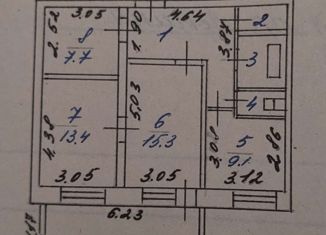 3.05
4.64
2.52
8
7.7
1.90
1
3.87
2
3
4
7
13.4
4.38
5.03
6
15.3
3.08
5
9.1
2.86
3.05
3.05
3.12
6.23